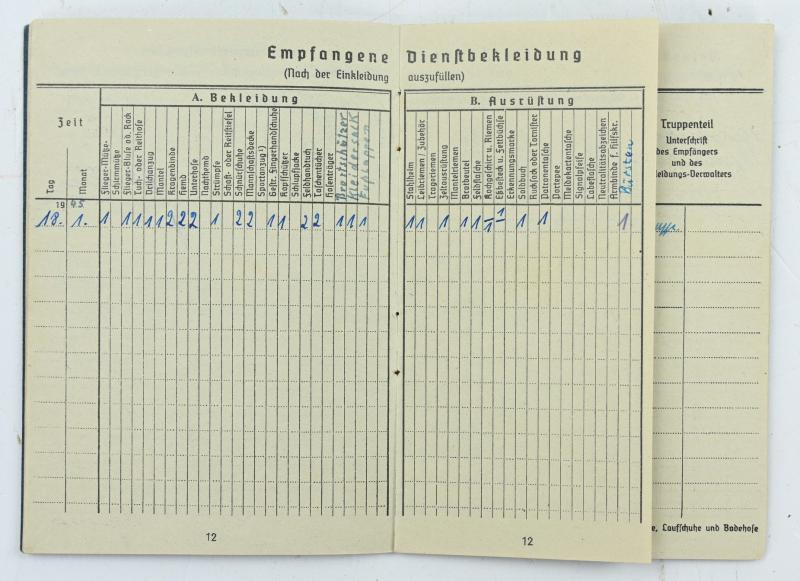 Empfangene Dienstbekleidung
(Nach der Einkleidung auszufüllen)
Zeit
Tag
Monat
A. Bekleidung
Flieger-Mütze-
Schirmmütze
Flieger-Bluse od. Rock
Tuch- oder Reithose
Drillichanzug
Mantel
Kragenbinde
Hemd
Unterhose
Nachthemd
Strümpfe
Schaft- oder Reitstiefel
Schnürschuhe
Mannschaftsdecke
Sportanzug¹)
Gestr. Fingerhandschuhe
Kopfschützer
Schlupfjacke
Feldhandtuch
Taschentücher
Hosenträger
Kleidersack
Fußlappen
B. Ausrüstung
Stahlhelm
Leibriemen / Zubehör
Trageriemen
Zeltausrüstung
Mantelriemen
Brotbeutel
Feldflasche
Kochgeschirr u. Riemen
Eßbesteck u. Fettbüchse
Erkennungsmarke
Soldbuch
Rucksack oder Tornister
Patronentasche
Portepee
Meldekartentasche
Signalpfeife
Labeflasche
Neutralitätsabzeichen
Armbinde f. Hilfskr.
Bürsten
Truppenteil
Unterschrift
des Empfängers
und des
leidungs-Verwalters
19 45.
18. 1. 1 1 1 1 1 2 2 2 1 2 2 1 1 2 2 1 1 1 1 1 1 1 1 1 1 1 1 1
12
12
e, Laufschuhe und Badehose